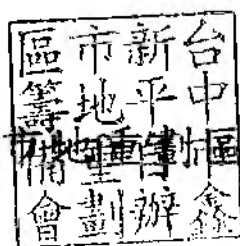 台中市鑫
新平自辦
市地重劃
區籌備會
市地重劃區